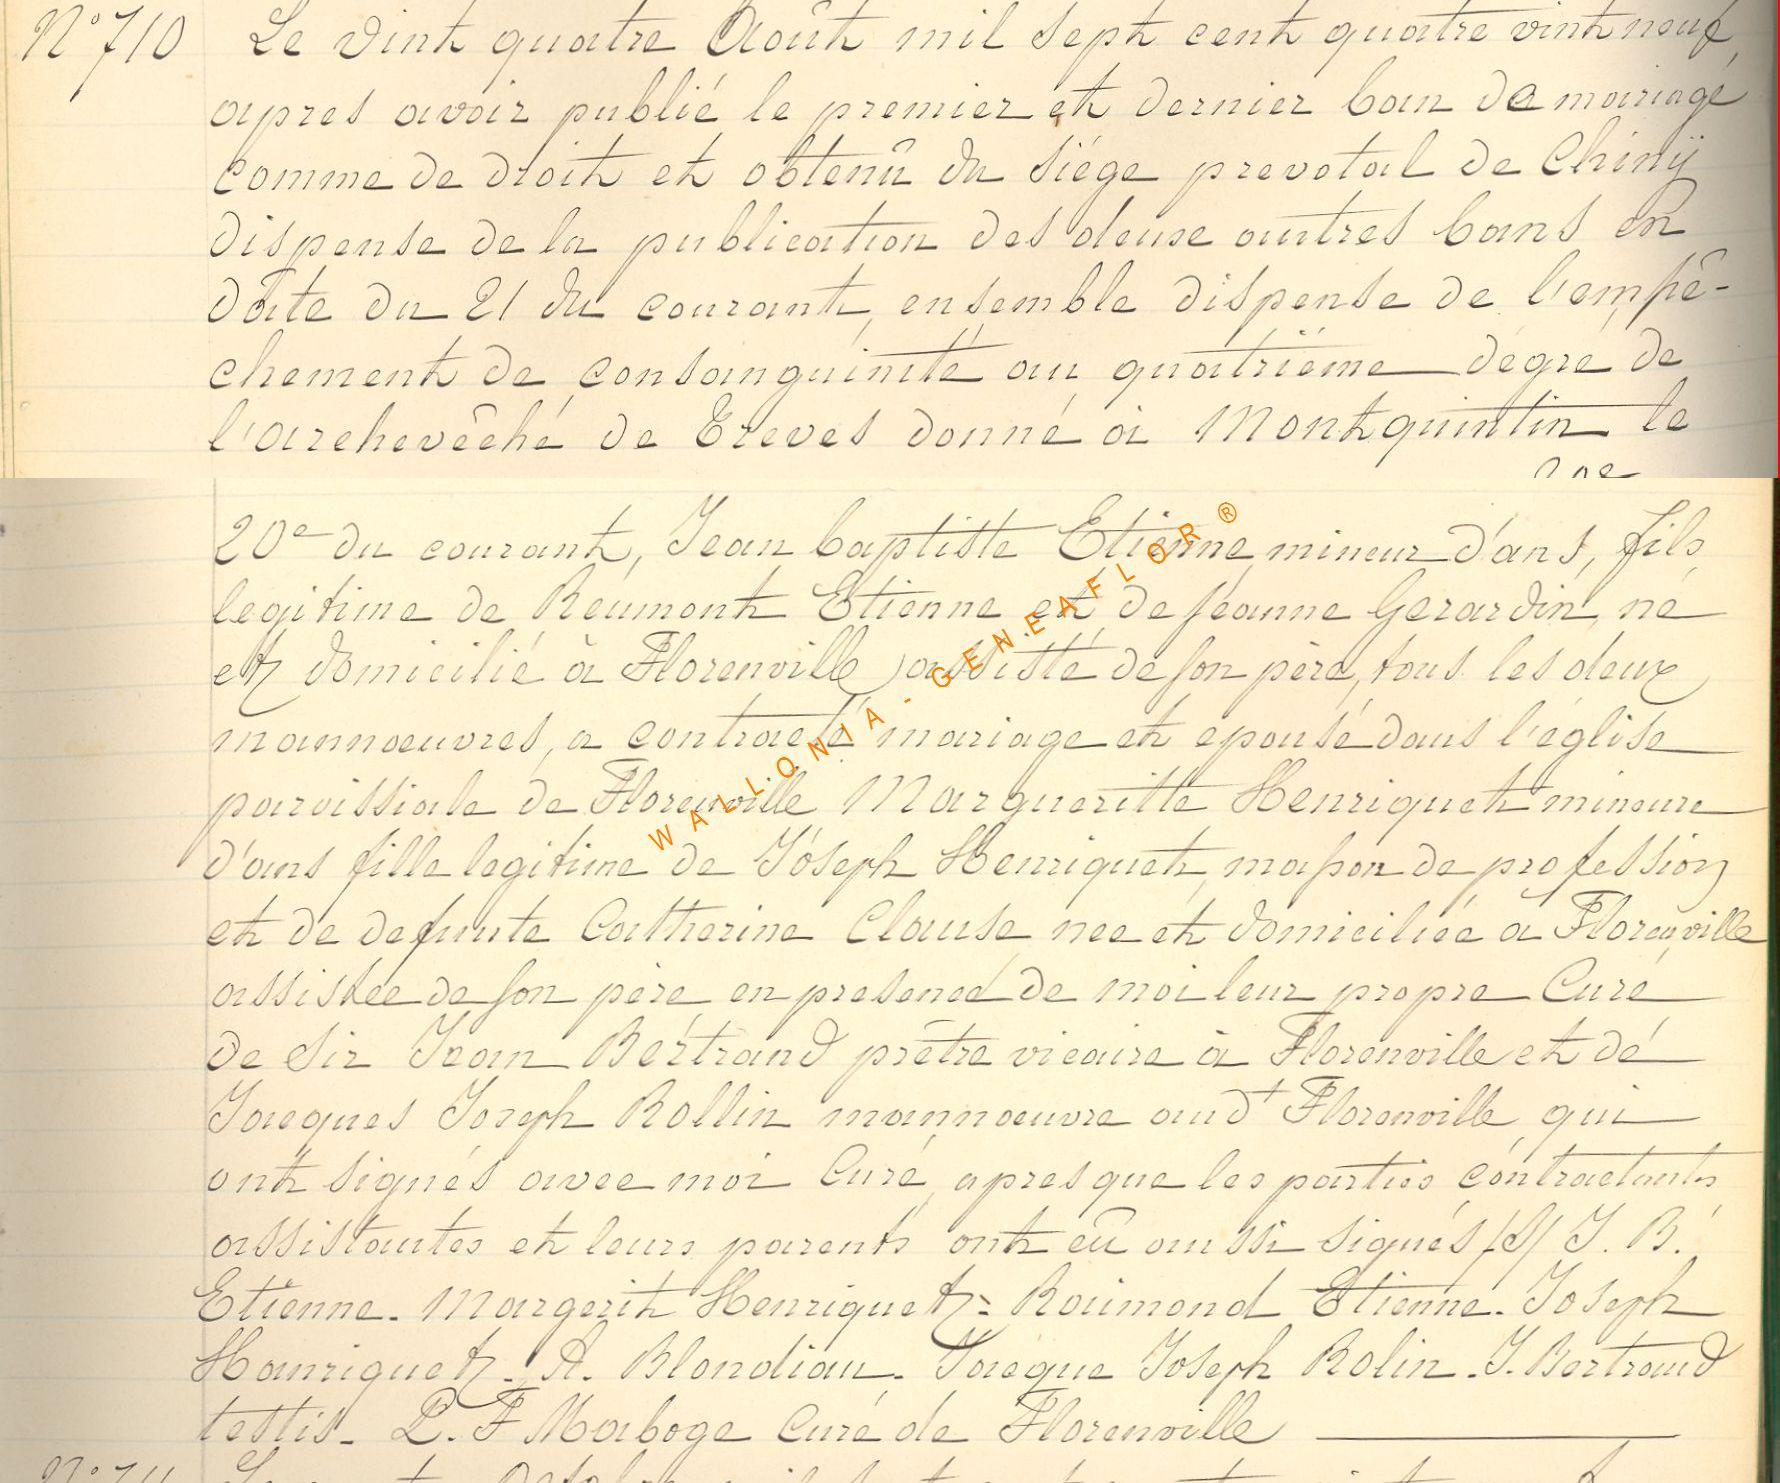 N° 710 Le vint quatre Août mil sept cent quatre vint neuf,
apres avoir publié le premier et dernier ban de mariage
comme de droit et obtenû du siége prevotal de Chinÿ
dispense de la publication des deuse autres bans en
date du 21 du courant, ensemble dispense de l'empê-
chement de consanguinité au quatriéme dégré de
l'archevêché de Treves donné à Montquintin le
20e
20e du courant, Jean baptiste Etienne mineur d'ans, fils
legitime de Réumont Etienne et de jéanne Gerardin, né
et domicilié à Florenville, assisté de son père, tous les deux
mannoeuvres, a contracté mariage et epousé dans l'église
paroissiale de Florenville Margueritte Henriquet mineure
d'ans fille legitime de Jóseph Henriquet, mason de profession
et de defunte Catherine Clause née et domiciliée à Florenville
assistée de son père en presence de moi leur propre Curé
de Sir Jean Bértrand prêtre vicaire à Florenville et dé
Jacques Joseph Rollin mannoeuvre aud't Florenville qui
ont signés avec moi Curé, apres que les parties contractantes
assistantes et leurs parents ont eû aussi signés /S/ J. B.
Etienne. Margerit Henriquet. Raimond Etienne. Joseph
Hanriquet. A. Blondiau. Jacque Joseph Rolin. J. Bertrand
testis. P. F Maboge Curé de Florenville
N° 711
WALLONIA - GENEAFLOR ®